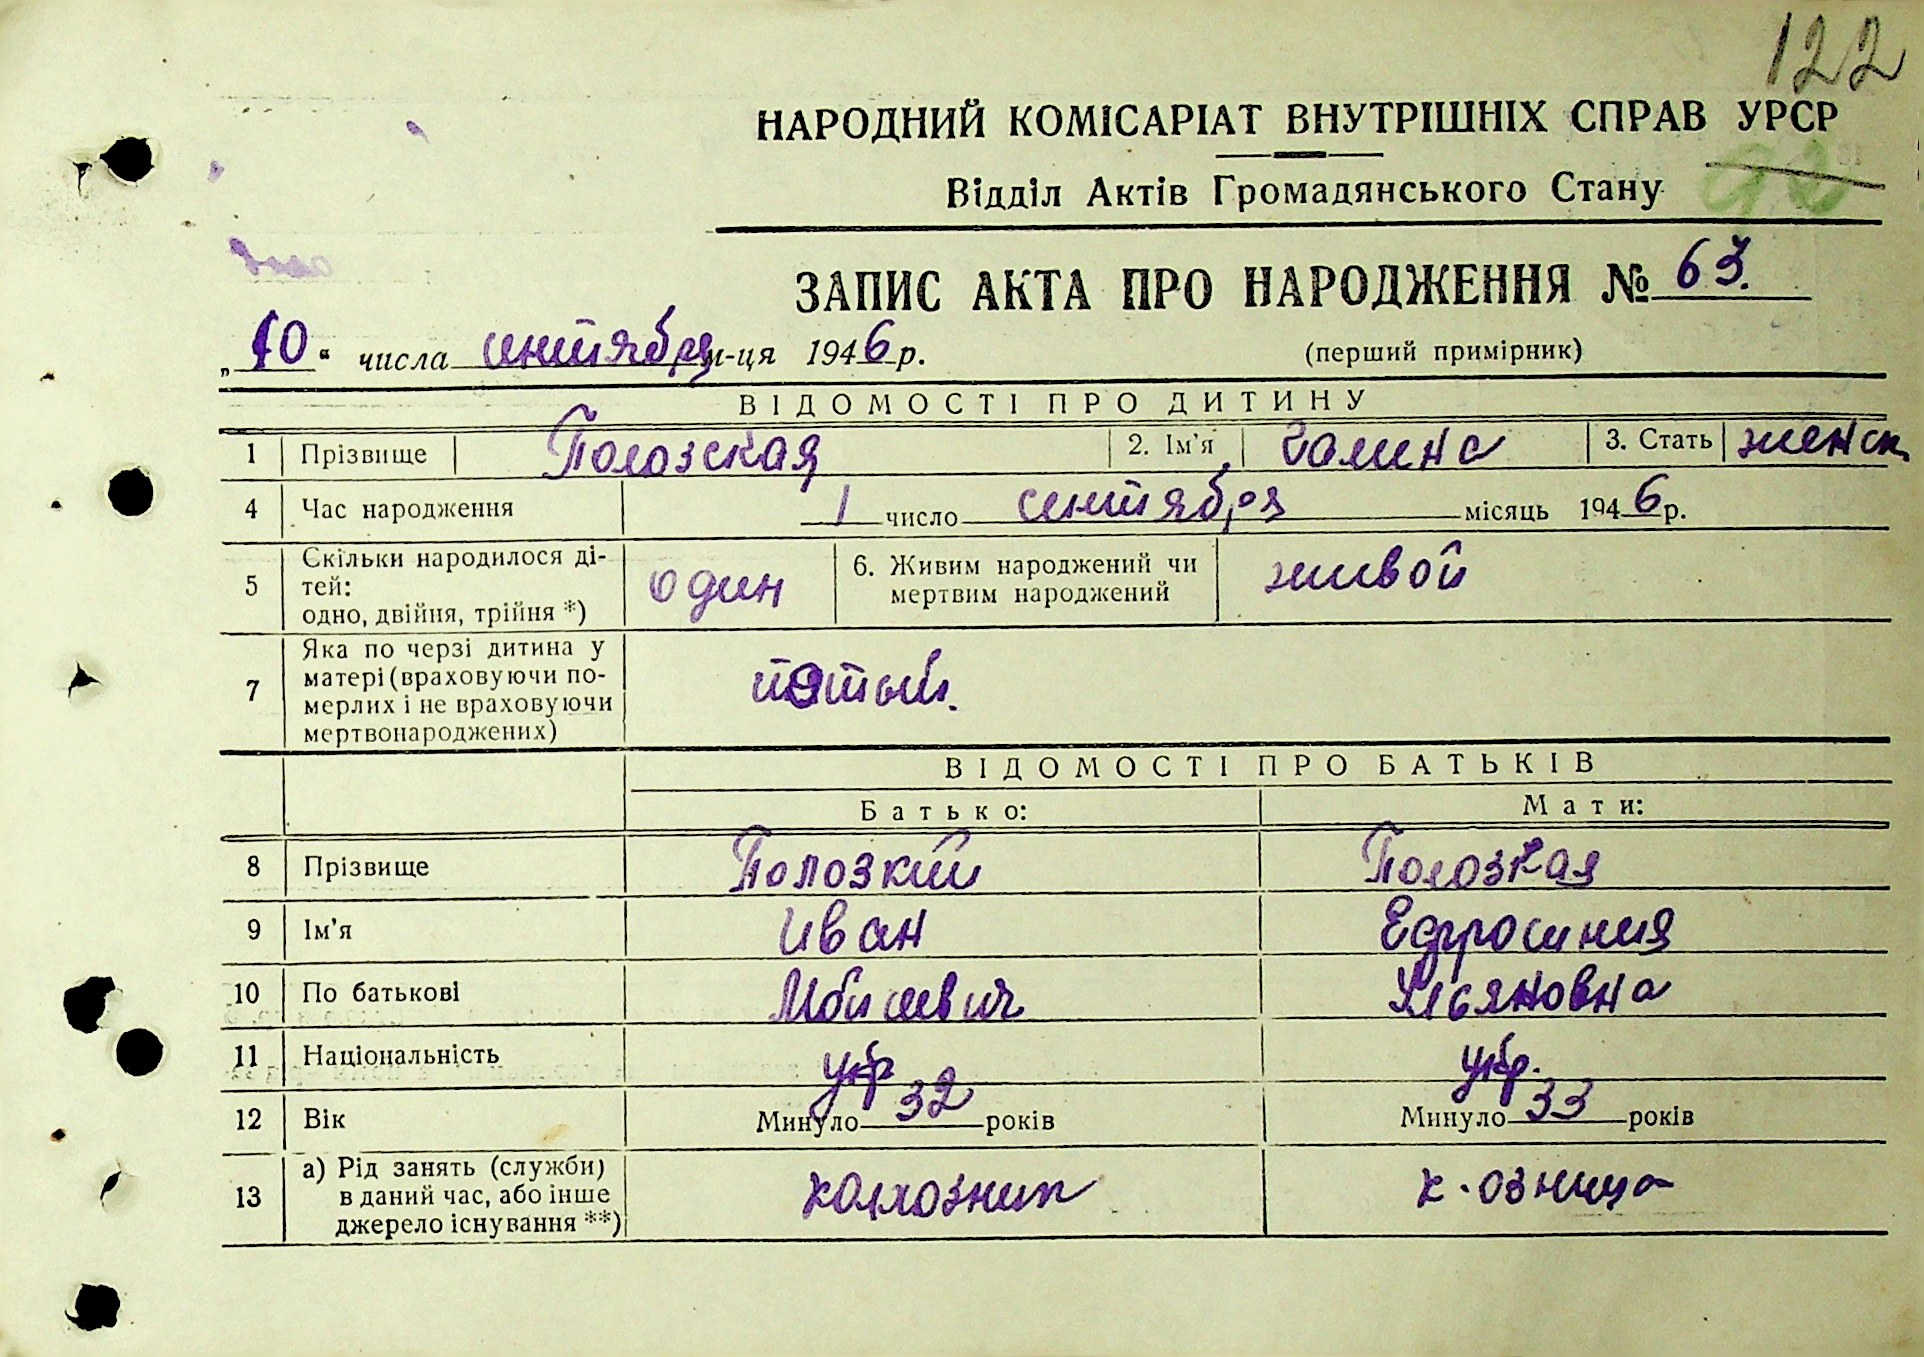 122
НАРОДНИЙ КОМІСАРІАТ ВНУТРІШНІХ СПРАВ УРСР
Відділ Актів Громадянського Стану
ЗАПИС АКТА ПРО НАРОДЖЕННЯ № 63.
„10“ числа сентября м-ця 1946 р. (перший примірник)
ВІДОМОСТІ ПРО ДИТИНУ
1 Прізвище Полозская 2. Ім'я Галина 3. Стать женск.
4 Час народження 1 число сентября місяць 1946 р.
5 Скільки народилося ді-
тей:
одно, двійня, трійня *) один 6. Живим народжений чи
мертвим народжений живой
7 Яка по черзі дитина у
матері (враховуючи по-
мерлих і не враховуючи
мертвонароджених) пятый.
ВІДОМОСТІ ПРО БАТЬКІВ
Батько: Мати:
8 Прізвище Полозкий Полозкая
9 Ім'я Иван Ефросиния
10 По батькові
11 Національність укр укр.
12 Вік Минуло 32 років Минуло 33 років
13 а) Рід занять (служби)
в даний час, або інше
джерело існування **) колхозник к.озница